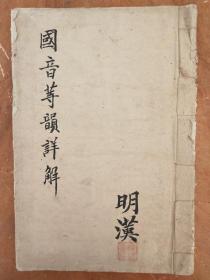 國音等韻詳解
明漢